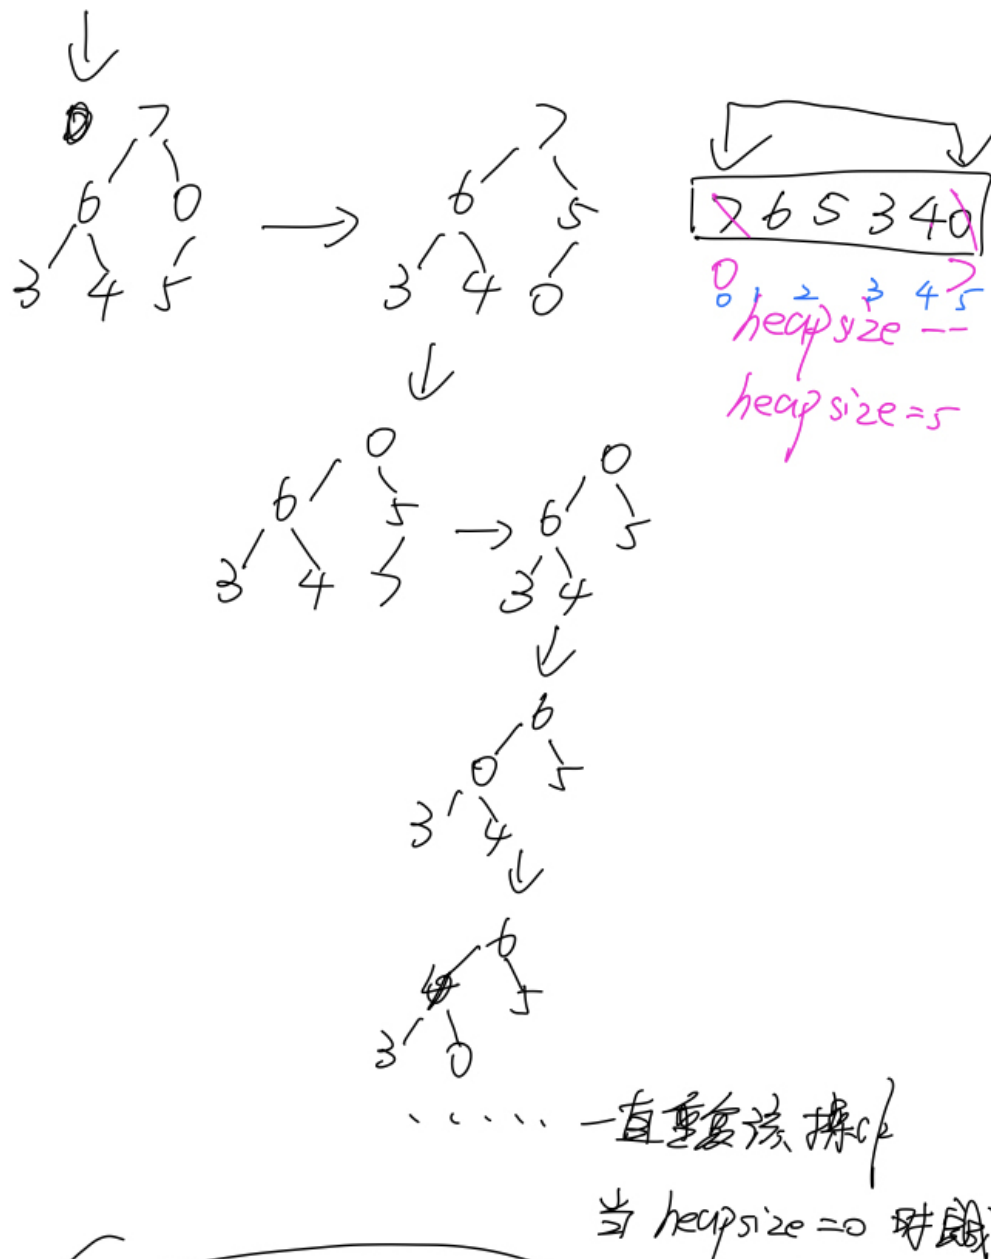 7
6 0
3 4 5
7
6 5
3 4 0
7 6 5 3 4 0
0 7
0 1 2 3 4 5
heapsize --
heapsize=5
0
6 5
3 4 7
0
6 5
3 4
6
0 5
3 4
6
4 5
3 0
..... 一直重复该操作
当 heapsize=0 时